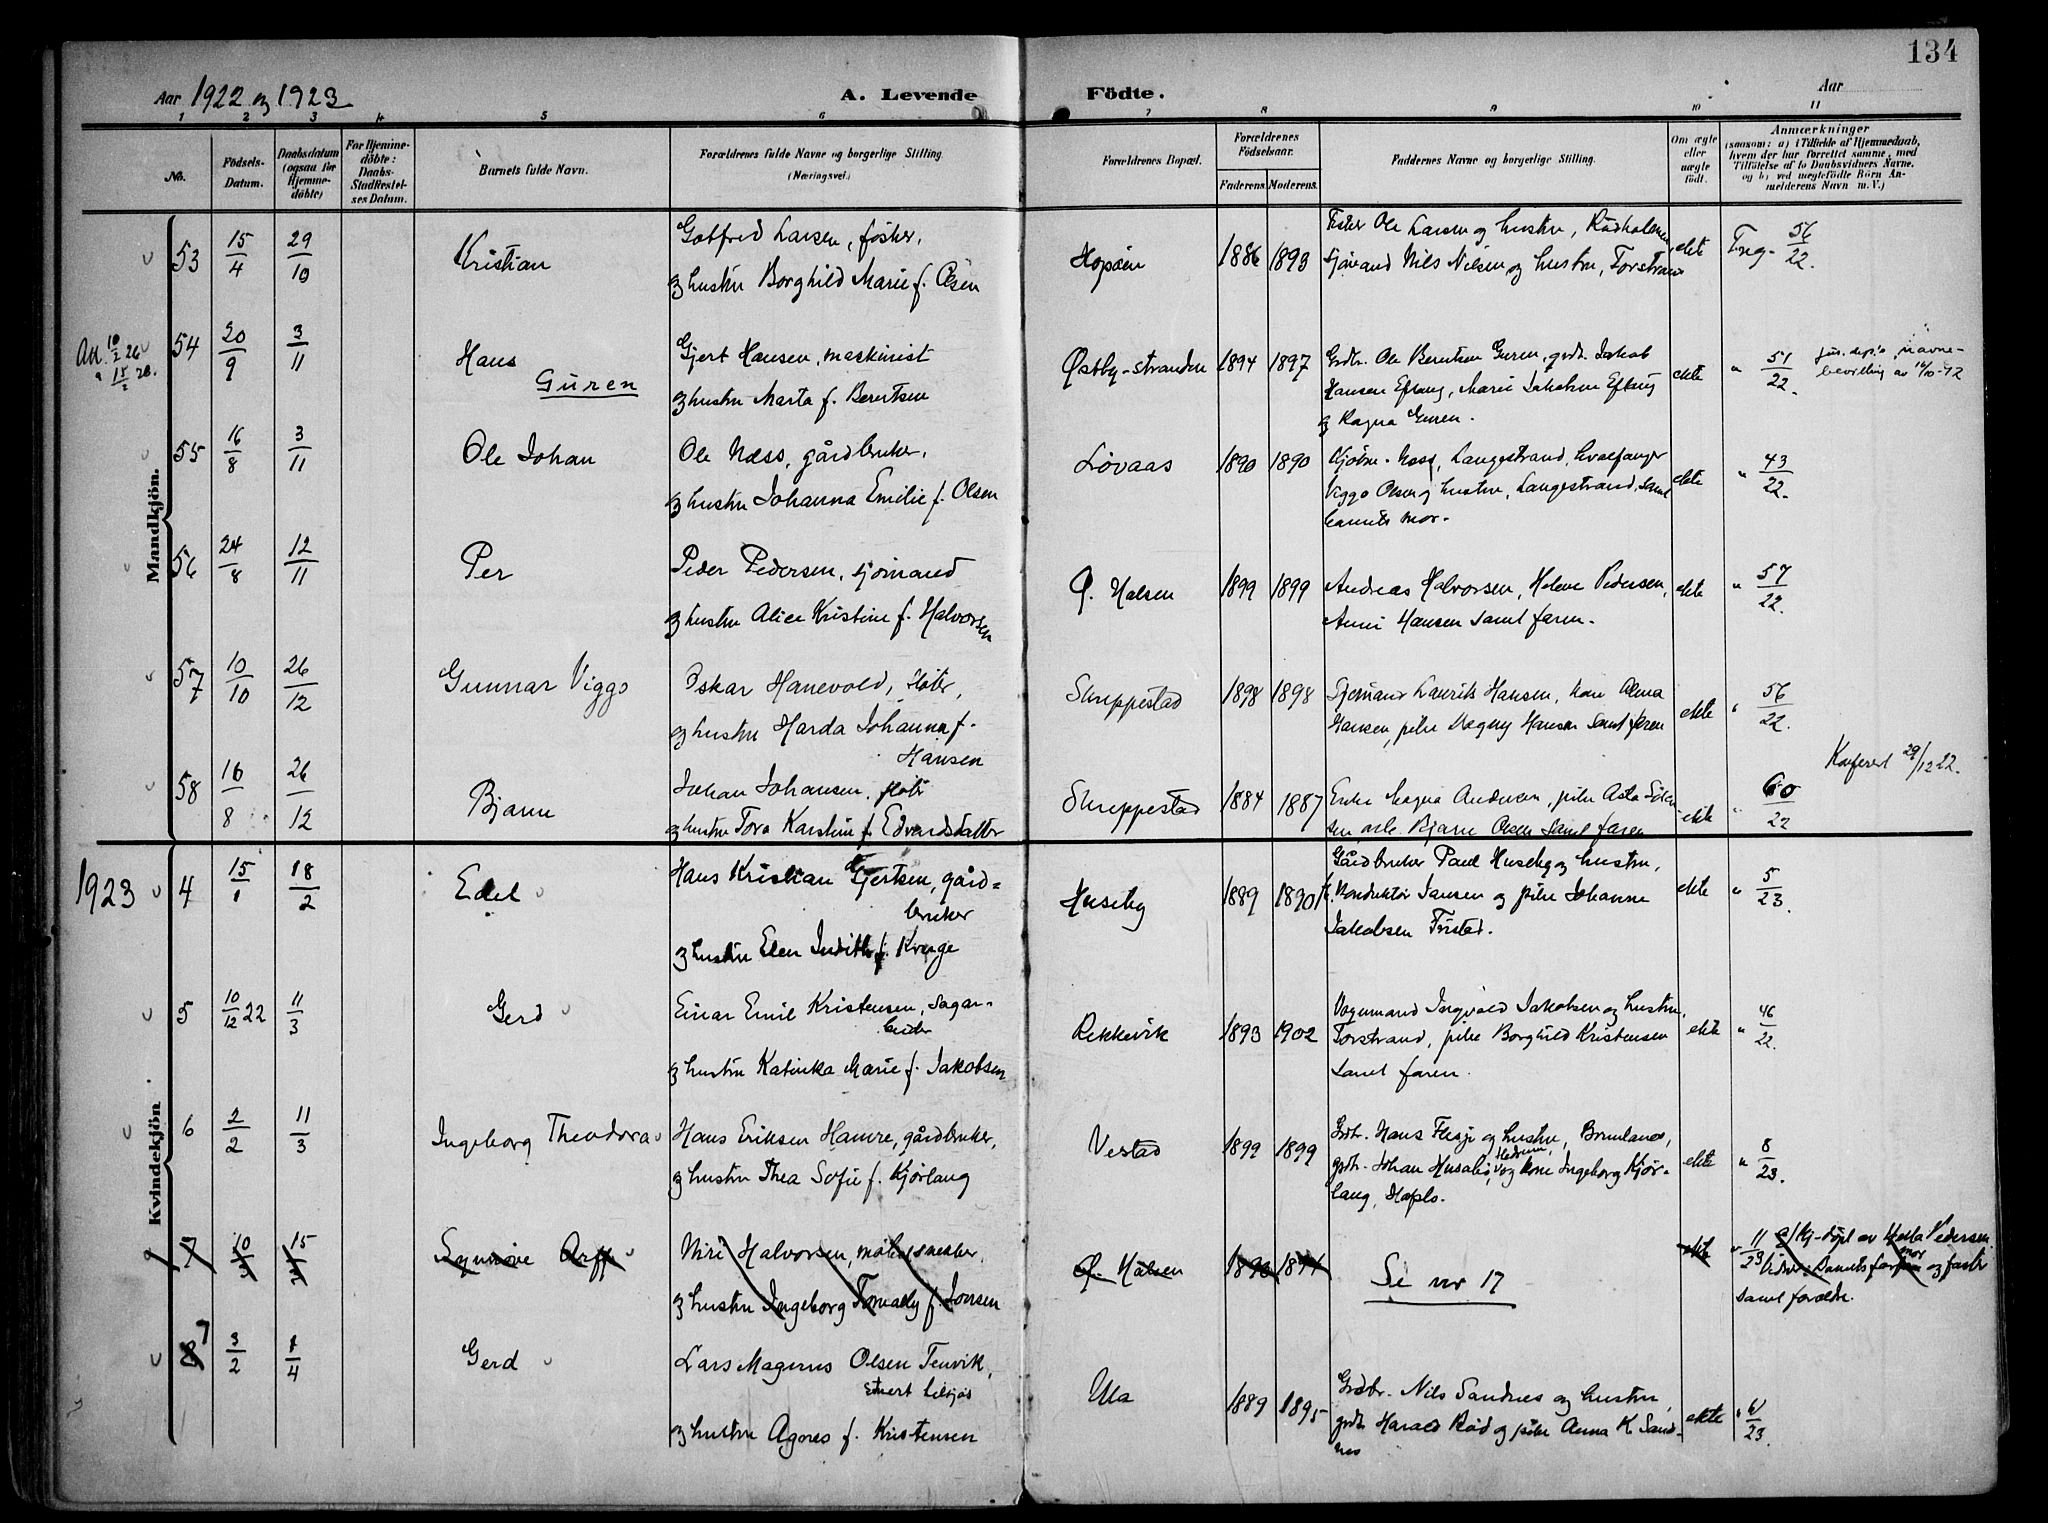 134
Aar 1922 og 1923
A. Levende Födte.
Aar
1 2 3 4 5 6 7 8 9 10 11
No.
Födsels-Datum.
Daabsdatum (ogsaa for Hjemme-döbte)
For Hjemme-döbte: Daabs-Stadfestel-ses Datum.
Barnets fulde Navn.
Forældrenes fulde Navne og borgerlige Stilling (Næringsvei.)
Forældrenes Bopæl.
Forældrenes Födselsaar.
Faderens Moderens.
Faddernes Navne og borgerlige Stilling.
Om ægte eller uægte födt.
Anmærkninger
(saasom: a) i Tilfælde af Hjemmedaab, hvem der har forrettet samme, med Tilföielse af to Daabsvidners Navne, og b) ved uægtefödte Börn Anmelderens Navn m. V.)
Mandkjön.
53 15/4 29/10 Kristian
Gotfred Larsen, fisker,
og hustru Borghild Marie f. Olsen
Hopöen 1886 1893
Fisker Ole Larsen og hustru, Rödholmen,
sjömand Nils Nilsen og hustru, Torstrand
ekte Tng. 56/22.
Att. 10/2 26
54 20/9 3/11 Hans
Guren
Gjert Hansen, maskinist
og hustru Marta f. Berntsen
Østby-stranden 1894 1897
Grdbr. Ole Berntsen Guren, grdb. Jakob
Hansen Eftang, Marie Jakobsen Eftang
og Ragna Guren.
ekte " 51/22. Jus. dep's navne-
bevilling av 16/10-42
55 16/8 3/11 Ole Johan
Ole Næss, gårdbruker,
og hustru Johanna Emilie f. Olsen
Lövaas 1890 1890
Næss, Langestrand, hvalfanger
Viggo Olsen og hustru, Langestrand, samt
barnets mor.
ekte " 43/22.
56 24/8 12/11 Per
Peder Pedersen, sjömand
og hustru Alice Kristine f. Halvorsen
Ö. Halsen 1899 1899
Andreas Halvorsen, Helene Pedersen,
Anni Hansen samt faren.
ekte " 57/22.
57 10/10 26/12 Gunnar Viggo
Oskar Hanevold,
og hustru Harda Johanna f.
Hansen
Skreppestad 1898 1898
Sjömand Laurits Hansen, kone Alma
Hansen, pike Dagny Hansen samt faren
ekte " 56/22.
Konferert 29/12 22.
58 16/8 26/12 Bjarne
Johan Johansen,
og hustru Tora Karstine f. Edvardsdatter
Skreppestad 1884 1887
Enke Magna Andersen, pike Asta
sen, arb. Bjarne Olsen samt faren
ekte " 60/22
1923
Kvindekjön
4 15/1 18/2 Edel
Hans Kristian Gjertsen, gård=
bruker
og hustru Elen Judith f. Kvege
Huseby 1889 1890
Gårdbruker Paul Huseby og hustru,
Konduktör Jansen og pike Johanne
Jakobsen Fristad.
ekte " 5/23.
5 10/12 22 11/3 Gerd
Einar Emil Kristensen, sagar-
beider
og hustru Katinka Marie f. Jakobsen
Rekkevik 1893 1902
Vognmand Ingvald Jakobsen og hustru,
Torstrand, pike Borghild Kristensen
samt faren.
ekte " 46/22.
6 2/2 11/3 Ingeborg Theodora
Hans Eriksen Hamre, gårdbruker,
og hustru Thea Sofie f. Kjörlaug
Vestad 1899 1899
Grdb. Hans Flesje og hustru, Brunlanes,
grdb. Johan Husaby, Hedrum, og kone Ingeborg Kjör-
laug,
ekte " 8/23.
7 10/3 15/3 Synnöve Arff
Niri Halvorsen, malersvenber,
og hustru Ingeborg Tomally f. Jonsen
Ö. Halsen 1896 1894
Se nr 17
ekte " 11/23 Hj-döpt av Hella Pedersen
Vidner: Barnets farmor og faster
samt forældre.
8 7 3/2 1/4 Gerd
Lars Magnus Olsen Tenvik,
og hustru Agnes f. Kristensen
Ula 1889 1895
Grdbr. Nils Sandnes og hustru,
grdb. Harald Röd og pike Anna K. Sand-
nes
ekte " 6/23.